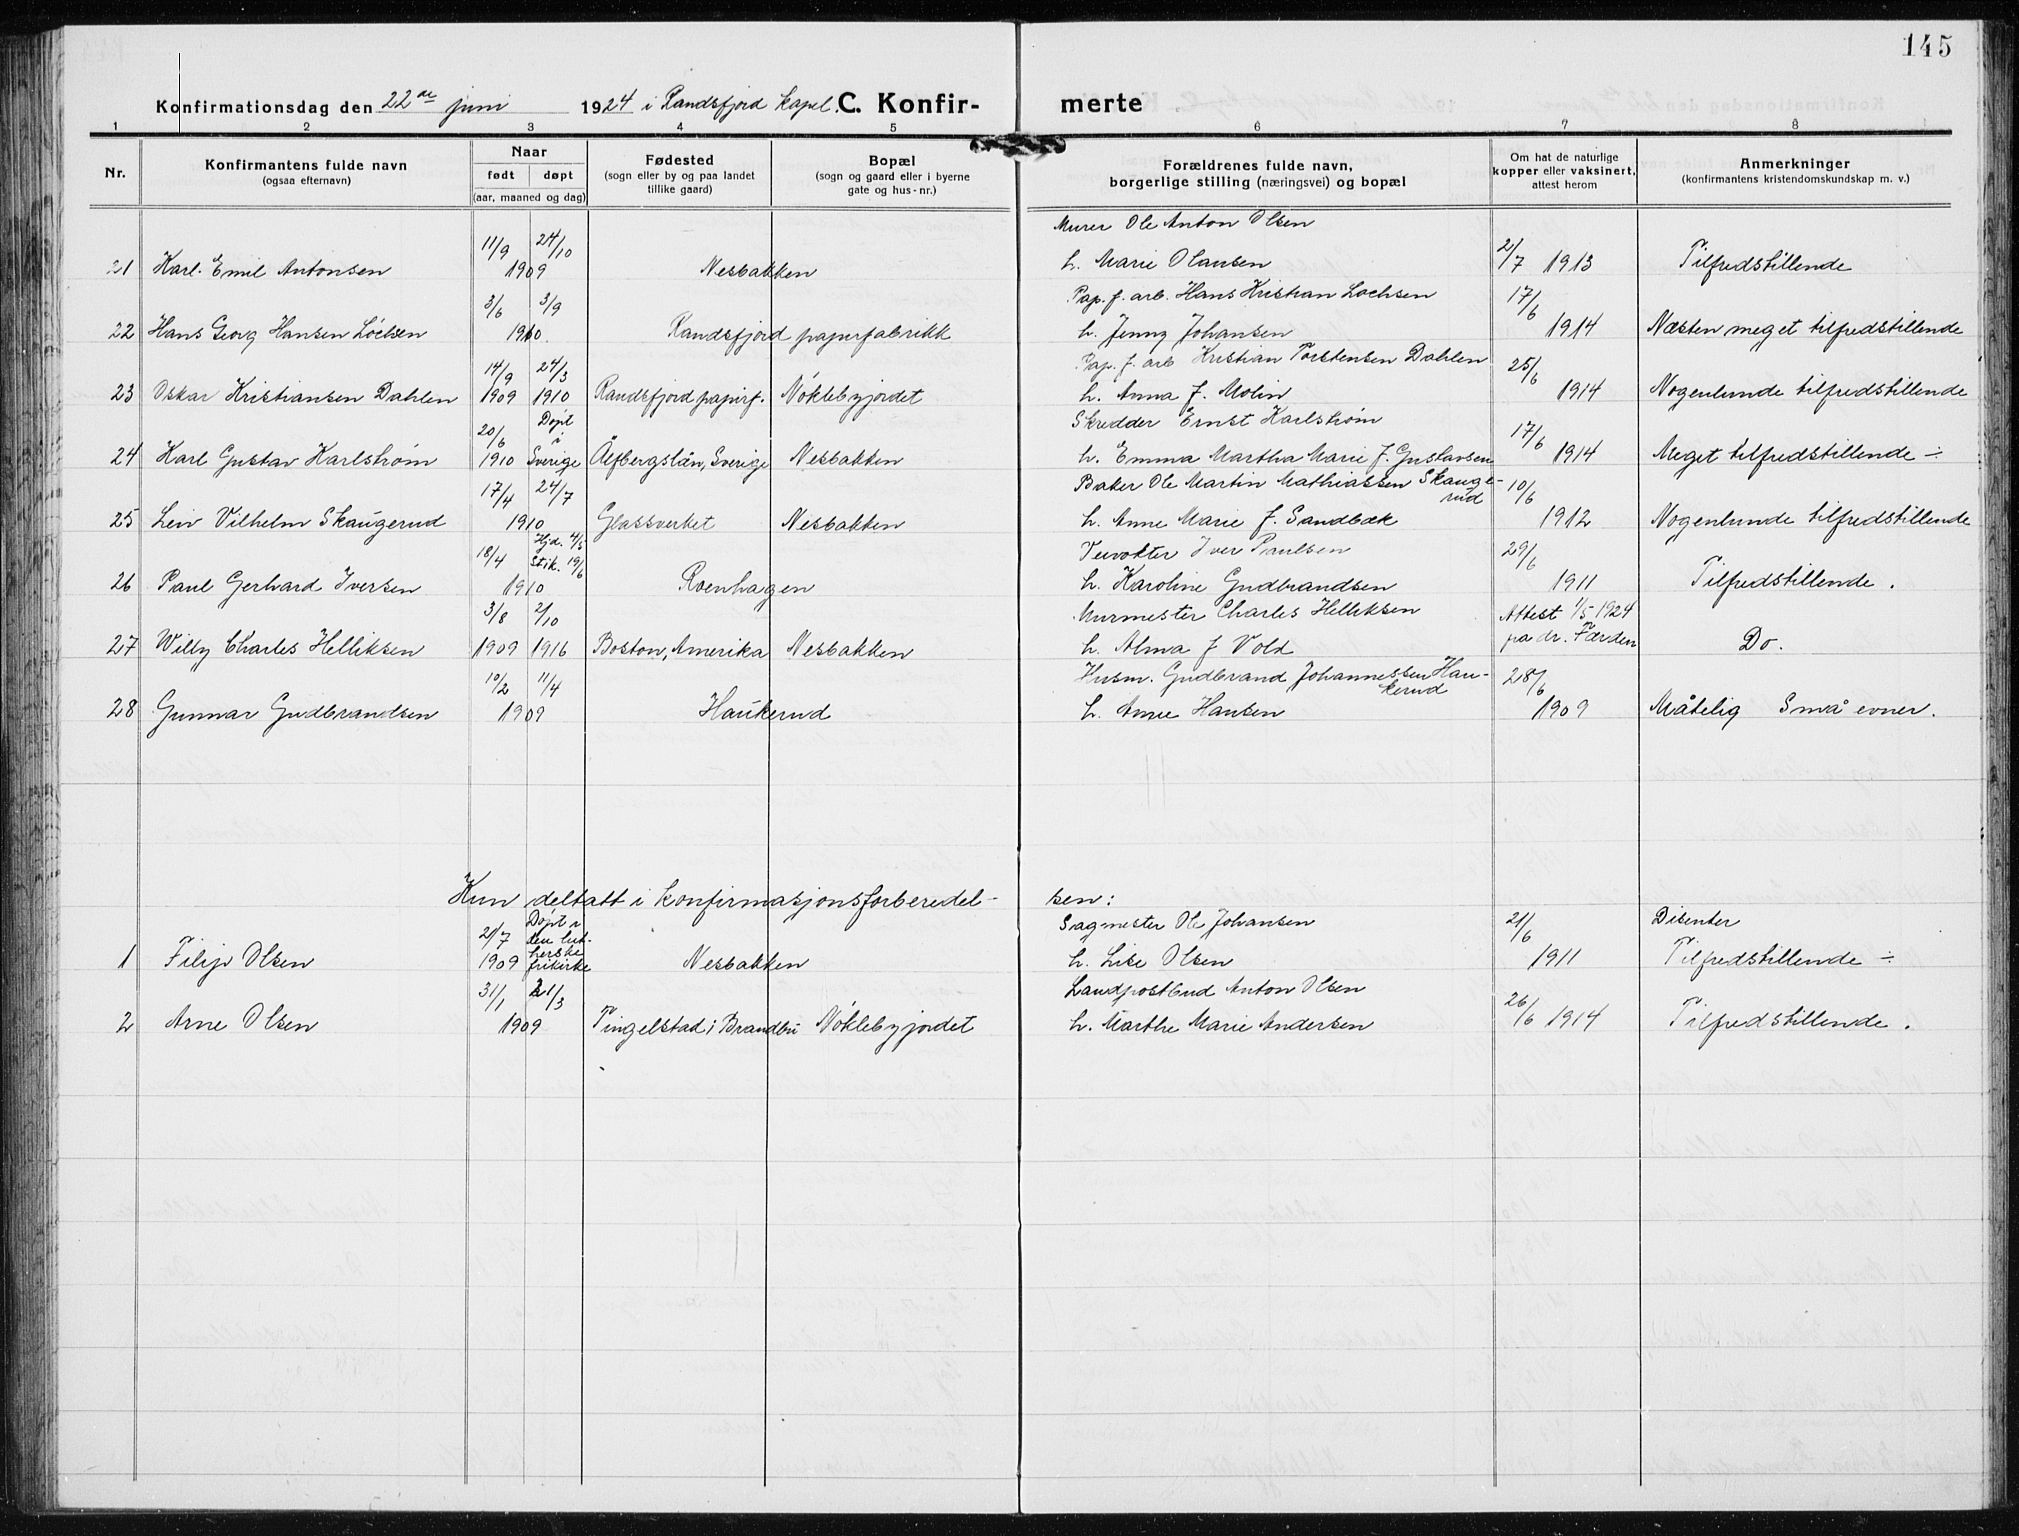 145
Konfirmationsdag den 22de juni 1924 i Randsfjord kapel. C. Konfir- merte
1 2 3 4 5 6 7 8
Nr.
Konfirmantens fulde navn
(ogsaa efternavn)
Naar
født døpt
(aar, maaned og dag)
Fødested
(sogn eller by og paa landet
tillike gaard)
Bopæl
(sogn og gaard eller i byerne
gate og hus-nr.)
Forældrenes fulde navn,
borgerlige stilling (næringsvei) og bopæl
Om hat de naturlige
kopper eller vaksinert,
attest herom
Anmerkninger
(konfirmantens kristendomskundskap m. v.)
Murer Ole Anton Olsen
11/9 24/10 2/7
21 Karl Emil Antonsen 1909 Nesbakken h. Marie Olausen 1913 Tilfredstillende
3/6 3/9 Pap. f. arb. Hans Kristian Lochsen 17/6
22 Hans Georg Hansen Löchsen 1910. Randsfjord papirfabrikk h. Jenny Johansen 1914 Næsten meget tilfredstillende
14/9 24/3 Pap. f. arb Kristian Torstensen Dahlen 25/6
23 Oskar Kristiansen Dahlen 1909 1910 Randsfjord papirf. Nöklebyjordet h. Anna f. Molin 1914 Nogenlunde tilfredstillende
20/6 Døpt i Skredder Ernst Karlstrøm 17/6
24 Karl Gustav Karlstrøm 1910 Sverige Älfbergslän, Sverige Nesbakken h. Emma Martha Marie f. Gustavsen 1914 Meget tilfredstillende ÷
17/4 24/7 Baker Ole Martin Mathiassen Skauge- 10/6
rud
25 Leiv Vilhelm Skaugerud 1910 Glassverket Nesbakken h. Anne Marie f. Sandbæk 1912 Nogenlunde tilfredstillende
18/4 Hjd. 4/5 Stik. 19/6 Veivokter Iver Paulsen 29/6
26 Paul Gerhard Iversen 1910 Roenhagen h. Karoline Gudbrandsen 1911 Tilfredstillende.
3/8 2/10 Murmester Charles Helliksen Attest 1/5 1924
27 Willy Charles Helliksen 1909 1916 Boston, Amerika Nesbakken h. Alma f Vold pa dr. Færden Do.
10/2 11/4 Husm. Gudbrand Johannessen Hau- 28/6
kerud
28 Gunnar Gudbrandsen 1909 Haukerud h. Anne Hansen 1909 Måtelig Små evner.
Kun deltatt i konfirmasjonsforberedel- sen:
21/7 Døpt i Sagmester Ole Johansen 21/6 Disenter
den lut-
1 Filip Olsen 1909 herske frikirke Nesbakken h. Lise Olsen 1911 Tilfredstillende ÷
31/1 21/3 Landpostbud Anton Olsen
2 Arne Olsen 1909 Tingelstad i Brandbu Nöklebyjordet h. Marthe Marie Andersen 26/6 1914 Tilfredstillende.